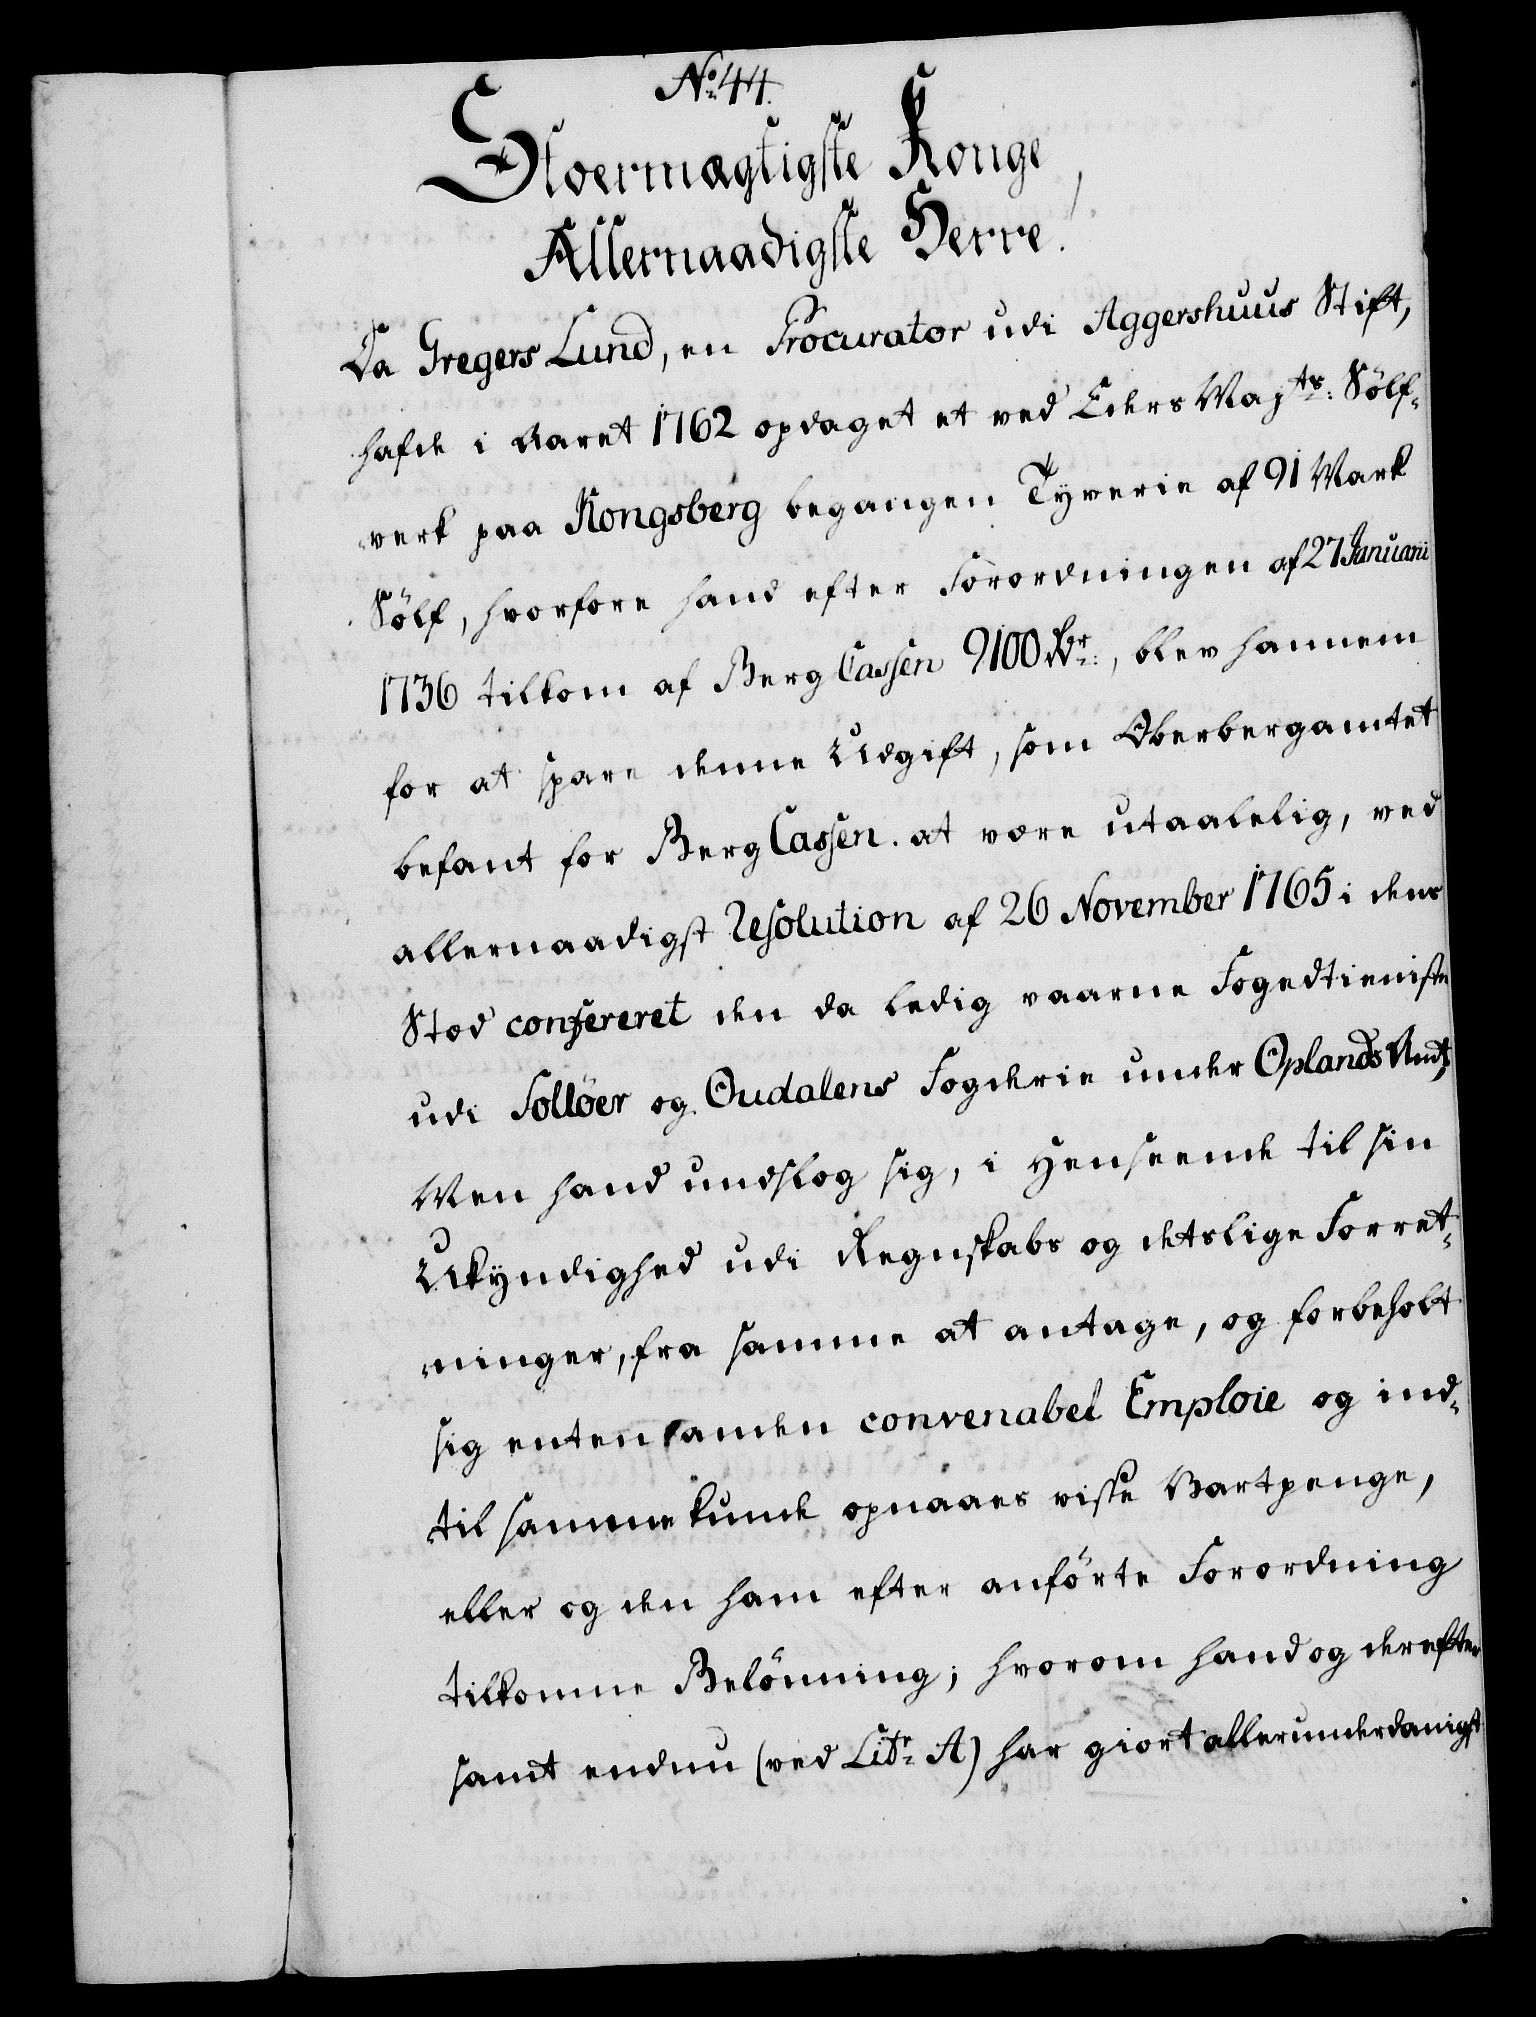 No: 44.
Stoermægtigste Konge,
Allernaadigste Herre!
Da Gregers Lund, en Procurator udi Aggershuus Stift,
hafde i Aaret 1762 opdaget et ved Eders Majts: Sölf-
verk paa Kongsberg begangen Tyverie af 91 Mark
Sölf, hvorfore hand efter Forordningen af 27 Januarii
1736 tilkom af Berg Cassen 9100 Rdr:, blev hannem
for at spare denne Udgift, som Oberbergamtet
befant for Berg Cassen at være utaalelig, ved
allernaadigst Resolution af 26 November 1765 i dens
Stæd confereret den da ledig vaarne Fogedtieniste
udi Solløer og Oudalens Fogderie under Oplands Amt,
Men hand undslog sig, i Henseende til sin
Ukyndighed udi Regnskabs og detslige Forret-
ninger, fra samme at antage, og forbeholt
sig enten anden convenabel Emploie og ind-
til samme kunde opnaaes visse Vartpenge,
eller og den ham efter anförte Forordning
tilkomne Belönning; hvorom hand og derefter
samt endnu (ved Litr: A) har giort allerunderdanigst